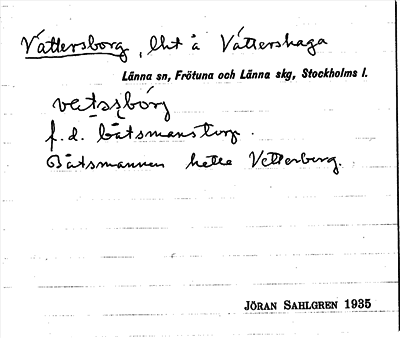 Vättersborg, lht å Vättershaga
Länna sn, Frötuna och Länna skg, Stockholms l.
f. d. båtsmanstorp.
Båtsmannen hette Vetterberg.
JÖRAN SAHLGREN 1935